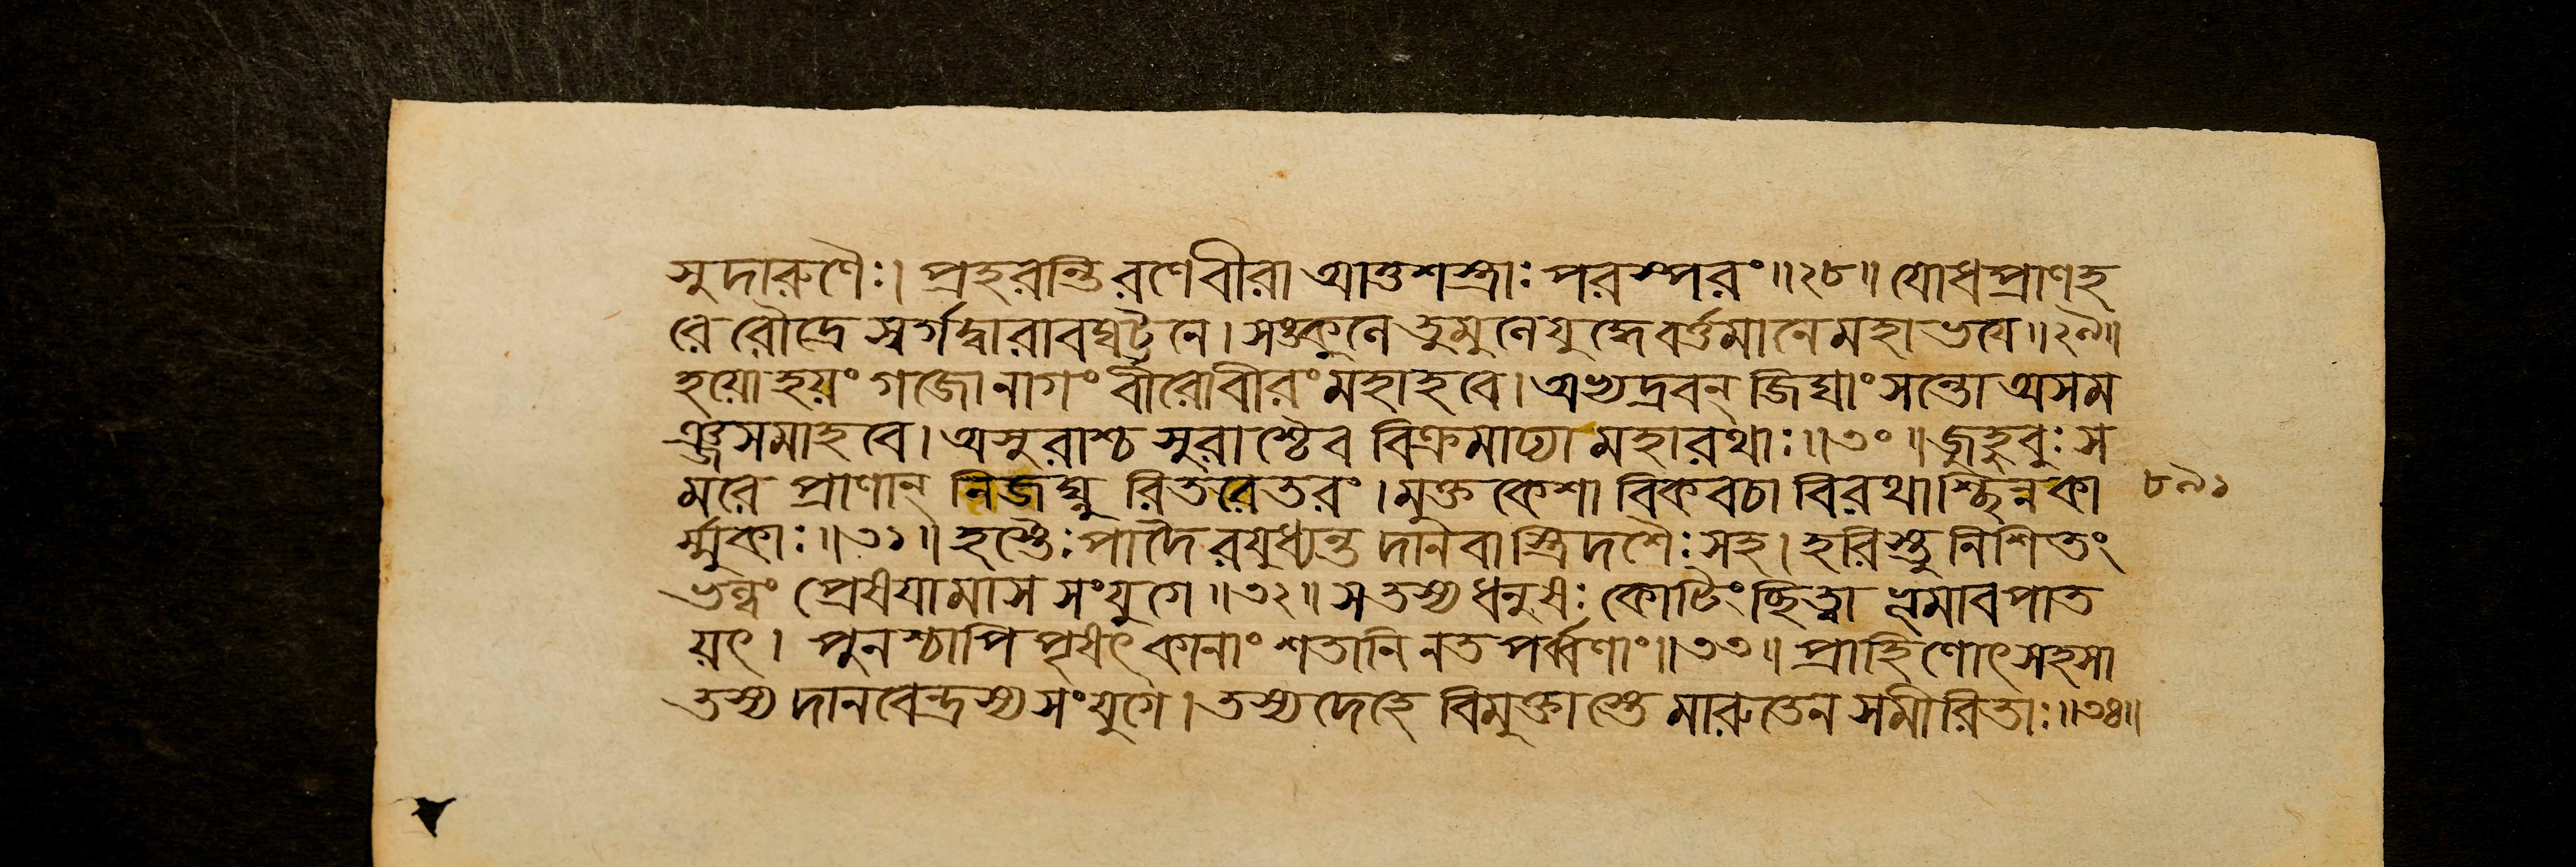 সুদারুণৈঃ। প্রহরন্তি রণে বীরা আত্তশস্ত্রাঃ পরস্পরং॥২৮॥ যোধপ্রাণহ
রে রৌদ্রে স্বর্গদ্বারাবঘট্টনে। সঙ্কুলে তুমুলে যুদ্ধে বর্ত্তমানে মহাভযে॥২৯॥
হয়ো হয়ং গজো নাগং বীরো বীরং মহাহবে। অভ্যদ্রবন্ জিঘাংসন্তো অসম
ঞ্জসমাহবে। অসুরাশ্চ সুরাশ্চৈব বিক্রমাঢ্যা মহারথাঃ॥৩০॥ জুহুবুঃ স
মরে প্রাণান্ নিজঘ্নু রিতরেতরং। মুক্তকেশা বিকবচা বিরথাশ্ছিন্নকা ৮৯১
র্ম্মুকাঃ॥৩১॥ হস্তৈঃ পাদৈরযুধ্যন্ত দানবাস্ত্রিদশৈঃ সহ। হরিস্তু নিশিতং
ভল্লং প্রেষযামাস সংযুগে॥৩২॥ স তস্য ধনুষঃ কোটিং ছিত্ত্বা ভূমাবপাত
য়ৎ। পুনশ্চাপি পৃষৎকানাং শতানি নতপর্ব্বণাং॥৩৩॥ প্রাহিণোৎ সহসা
তস্য দানবেন্দ্রস্য সংযুগে। তস্য দেহে বিমুক্তাস্তে মারুতেন সমীরিতাঃ॥৩৪॥